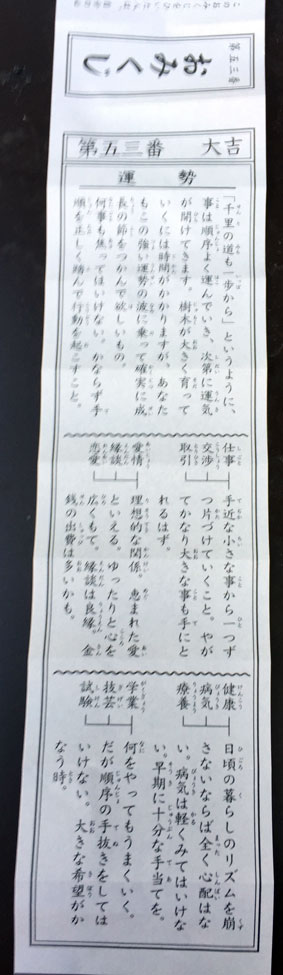 第五三番
おみくじ
第五三番 大吉
運勢
「千里の道も一歩から」というように、
事は順序よく運んでいき、次第に運気
が開けてきます。樹木が大きく育って
いくには時間がかかりますが、あなた
もこの強い運勢の波に乗って確実に成
長の節をつかんで欲しいもの。
何事も焦ってはいけない。かならず手
順を正しく踏んで行動を起こすこと。
仕事
交渉
取引
手近な小さな事から一つず
つ片づけていくこと。やが
てかなり大きな事も手にと
れるはず。
愛情
縁談
恋愛
理想的な関係。恵まれた愛
といえる。ゆったりと心を
広くもて。縁談は良縁。金
銭の出費は多いかも。
健康
病気
療養
日頃の暮らしのリズムを崩
さないならば全く心配はな
い。病気は軽くみてはいけな
い。早期に十分な手当てを。
学業
技芸
試験
何をやってもうまくいく。
だが順序の手抜きをしては
いけない。大きな希望がか
なう時。